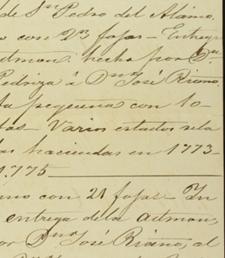 de Sn Pedro del Alamo,
o con 23 fojas - Entreg
admon. hecha por D.
Pedriza á Dn José Riano
ta pequena con 10
tas - Varios estados rela
las haciendas en 1773-
1.775
rno con 21 fojas - In
entrega de la admon,
or Dn José Riano, al